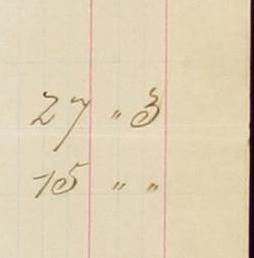 27 " 3
15 " "